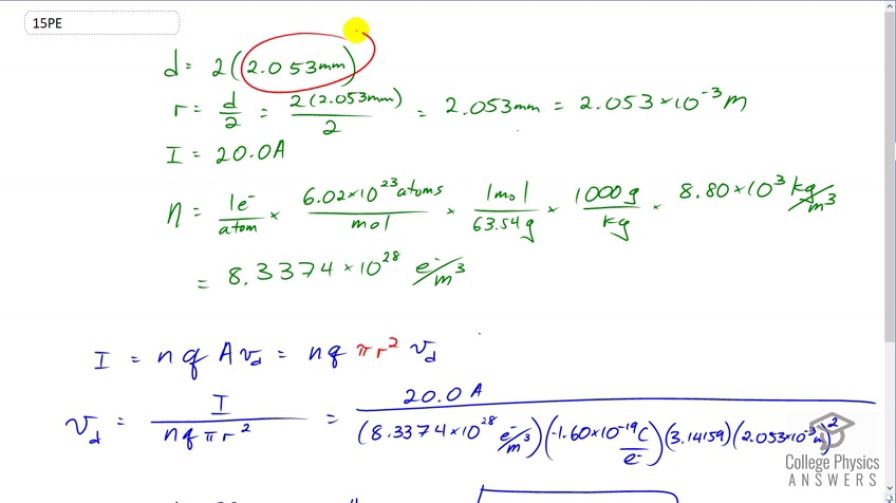 15PE
d = 2(2.053mm)
r = d/2 = 2(2.053mm)/2 = 2.053mm = 2.053×10⁻³ m
I = 20.0A
n = 1e⁻/atom × 6.02×10²³ atoms/mol × 1mol/63.54g × 1000g/kg × 8.80×10³ kg/m³
= 8.3374×10²⁸ e⁻/m³
I = nqAv_d = nqπr² v_d
v_d = I/nqπr² = 20.0A/(8.3374×10²⁸ e⁻/m³)(-1.60×10⁻¹⁹C/e⁻)(3.14159)(2.053×10⁻³m)²
College Physics
ANSWERS